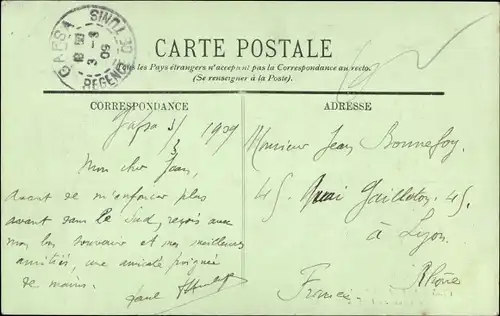 GAFSA
REGENCE DE TUNIS
3 - 3
09
CARTE POSTALE
les Pays étrangers n'acceptent pas la Correspondance au recto.
(Se renseigner à la Poste).
CORRESPONDANCE
Gafsa 3/3 1909
Mon cher Jean,
avant de m'enfoncer plus
avant dans le Sud, reçois avec
mon bon souvenir et mes meilleures
amitiés, une amicale poignée
de mains.
Paul
ADRESSE
Monsieur Jean Bonnefoy.
45 Quai Gailleton. 45.
à Lyon.
Rhône
France